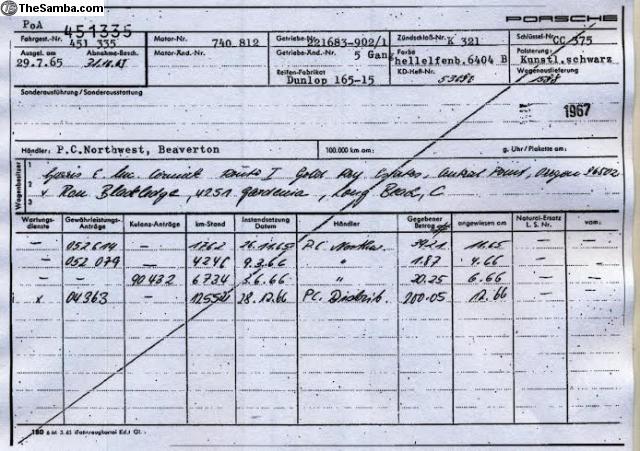 TheSamba.com
PoA 451335 PORSCHE
Fahrgest.-Nr. 451 335 Motor-Nr. 740 812 Getriebe-Nr. 221683-902/1 Zündschloß-Nr. K 321 Schlüssel-Nr. CC 375
Ausgel. am 29.7.65 Abnahme-Besch. Motor-Änd.-Nr. Getriebe-Änd.-Nr. 5 Gang Farbe hellelfenb.6404 B Polsterung: Kunstl.schwarz
Reifen-Fabrikat Dunlop 165-15 KD-Heft-Nr. Wagenauslieferung
Sonderausführung / Sonderausstattung
1967
Händler: P.C.Northwest, Beaverton 100.000 km am: g. Uhr / Plakette am:
Wagenbesitzer
1 I Gold Ray Estates, Central Point, Oregon 96502
2 x Ron Bladledge, 4251 Gardenia, Long Beach, C
3
Wartungsdienste Gewährleistungs-Anträge Kulanz-Anträge km-Stand Instandsetzung Datum Händler Gegebener Betrag angewiesen am Natural-Ersatz L. S. Nr. vom:
— 052614 — 1762 26.11.65 P.C. Northw. 34.21 11.65 — —
— 052 079 — 4246 9.3.66 " 1.87 4.66 — —
— 90432 6734 3.6.66 " 20.25 6.66 — —
x 04363 — 12552 28.12.66 P.C. Distrib. 200.05 12.66 — —
180